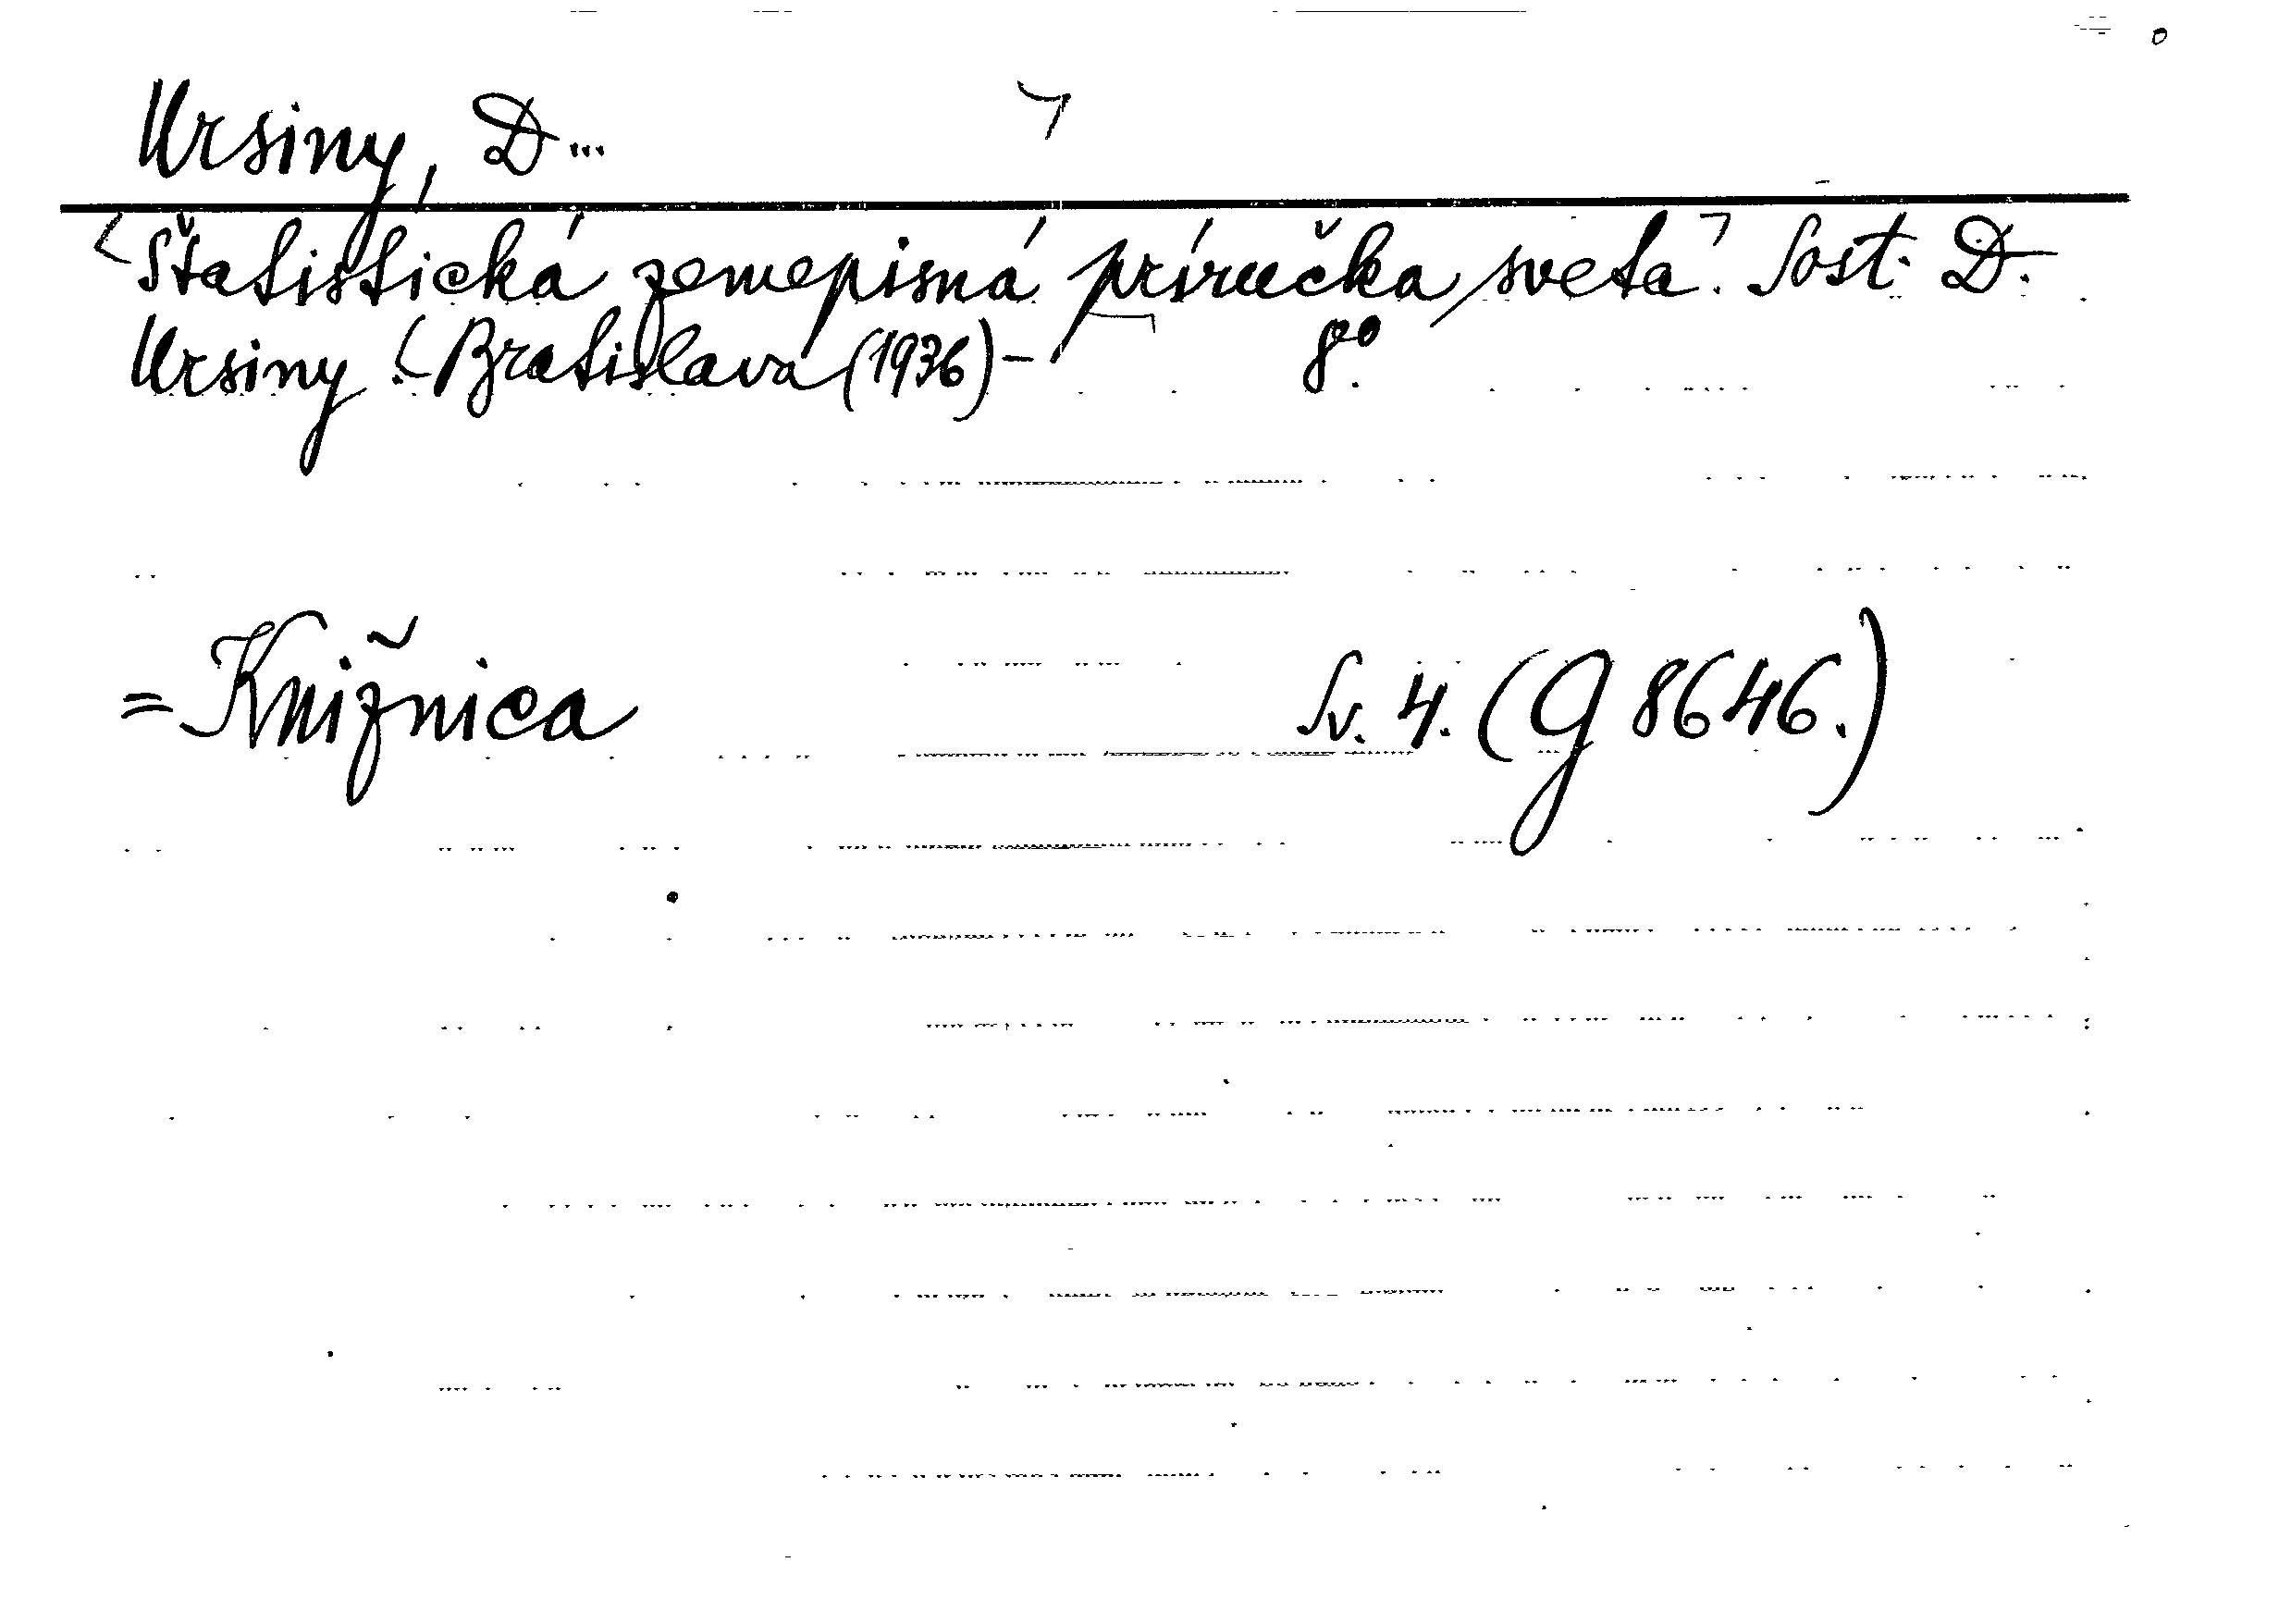 Ursiny, D...
Štatistická zemepisná príručka sveta. Sost. D.
Ursiny. Bratislava (1936)- 8°.
=Knižnica Sv. 4. (G 8646.)